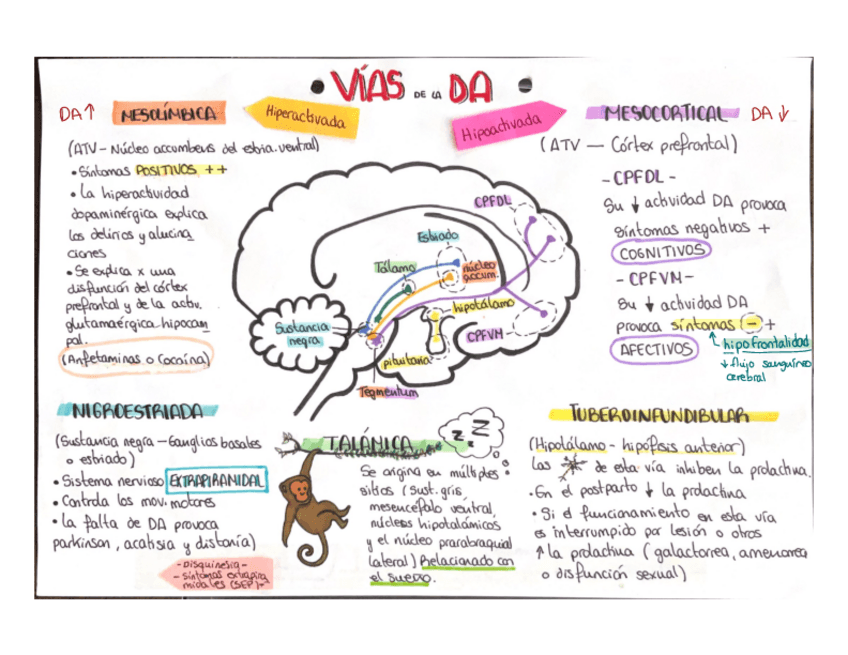 • VÍAS DE LA DA •
DA↑ MESOLÍMBICA
Hiperactivada
(ATV - Núcleo accumbens del estria. ventral)
• Síntomas POSITIVOS ++
• La hiperactividad
dopaminérgica explica
los delirios y alucina
ciones
• Se explica x una
disfunción del córtex
prefrontal y de la activ.
glutamaérgica hipocam
pal.
(Anfetaminas o Cocaína)
Hipoactivada
MESOCORTICAL DA↓
(ATV — Córtex prefrontal)
- CPFDL -
Su ↓ actividad DA provoca
síntomas negativos +
COGNITIVOS
- CPFVM -
Su ↓ actividad DA
provoca síntomas (-) +
AFECTIVOS
↑ hipofrontalidad
↓ flujo sanguíneo
cerebral
CPFDL
Estriado
Tálamo
núcleo
accum.
hipotálamo
Sustancia
negra
CPFVM
pituitaria
Tegmentum
NIGROESTRIADA
(Sustancia negra — Ganglios basales
o estriado)
• Sistema nervioso EXTRAPIRAMIDAL
• Controla los mov. motores
• La falta de DA provoca
parkinson, acatisia y distonía)
- Disquinesia -
- Síntomas extrapira
midales (SEP) -
TALÁMICA
z z Z
Se origina en múltiples
sitios (sust. gris,
mesencéfalo ventral,
núcleos hipotalámicos
y el núcleo prarabraquial
lateral) Relacionado con
el sueño.
TUBEROINFUNDIBULAR
(Hipotálamo - hipófisis anterior)
Las de esta vía inhiben la prolactina.
• En el postparto ↓ la prolactina
• Si el funcionamiento en esta vía
es interrumpido por lesión o otros
↑ la prolactina (galactorrea, amenorrea
o disfunción sexual)